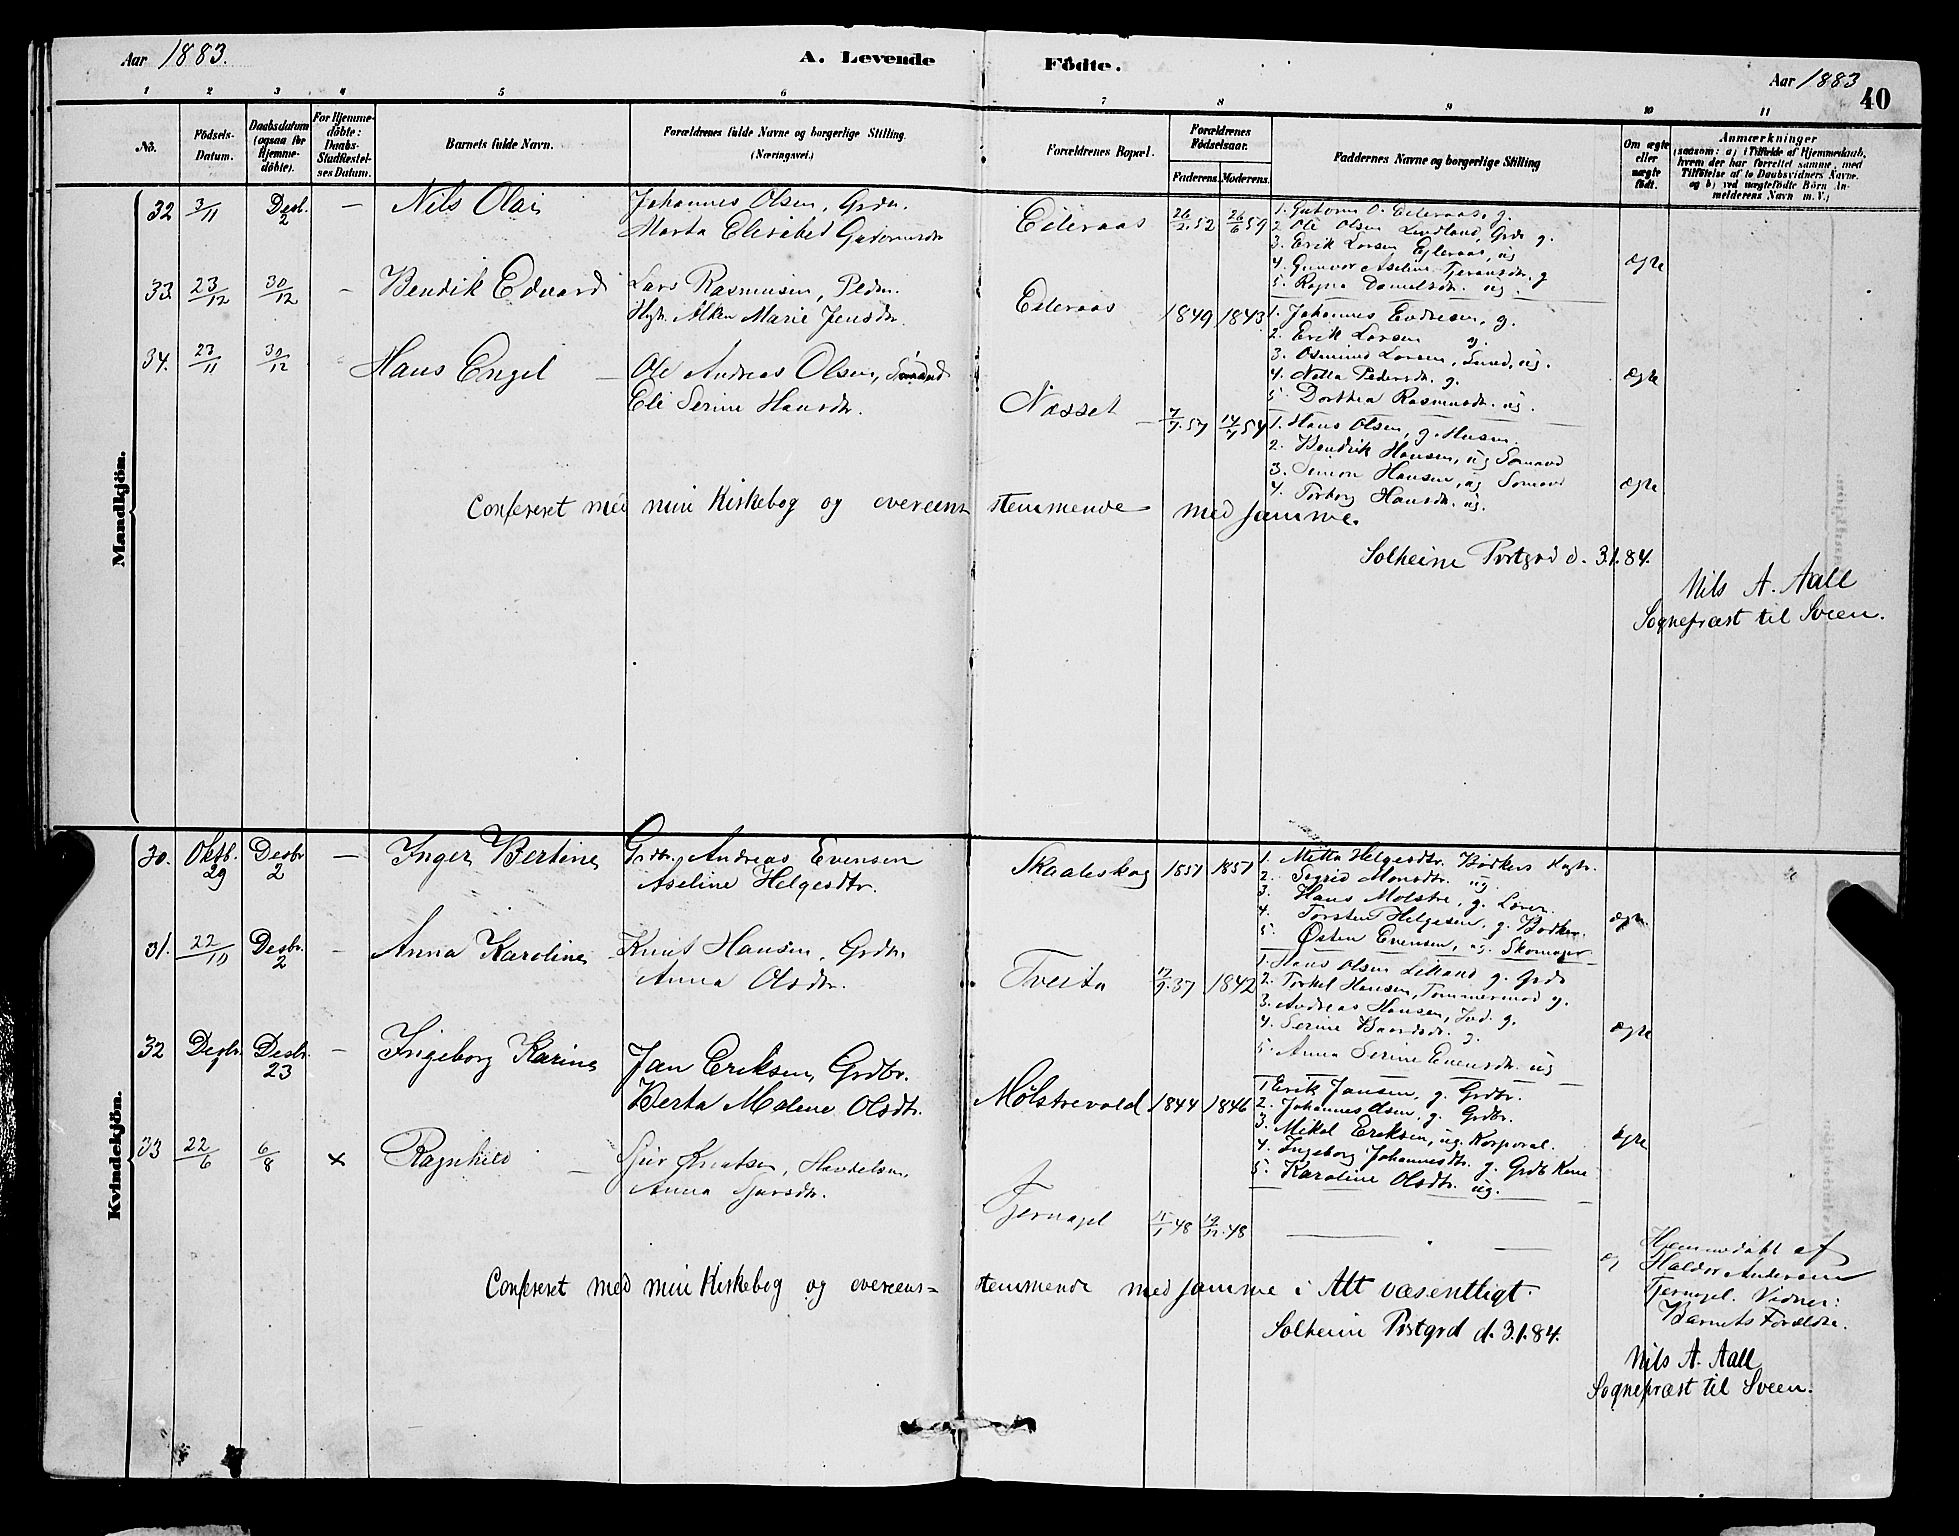 Aar 1883.
A. Levende Fødte.
Aar 1883
40
1 2 3 4 5 6 7 8 9 10 11
No.
Fødsels-
Datum.
Daabsdatum
(ogsaa for
Hjemme-
døbte).
For Hjemme-
døbte:
Daabs-
Stadfæstel-
ses Datum.
Barnets fulde Navn.
Forældrenes fulde Navne og borgerlige Stilling.
(Næringsvei.)
Forældrenes Bopæl.
Forældrenes
Fødselsaar.
Faderens. Moderens.
Faddernes Navne og borgerlige Stilling
Om ægte
eller
uægte
født.
Anmærkninger
(saasom: a) i Tilfælde af Hjemmedaab,
hvem der har forrettet samme, med
Tilføielse af to Daabsvidners Navne.
og b) ved uægtefødte Børn An-
melderens Navn m.V.)
Mandkjön.
32 3/11 Desb. 2 — Nils Olai
Johannes Olsen, Grdbr.
Marta Elisabet
Eileraas 52 26/6 59
2 Ole Olsen Lindland, Grdbr g.
3. Erik Larsen Eileraas, ug
4. Gunvor Aseline g
5. Ragna Danielsdtr. ug.
ægte
33 23/12 30/12 - Bendik Edvard
Lars Rasmussen,
Marie Jensdtr.
Eileraas 1849 1843
1. Johannes Endresen, g.
2. Erik Larsen g.
3. Osmund Larsen, Smed, ug.
4. Netta Pedersdtr. g.
5. Dorthea Rasmusdtr. ug.
ægte
34. 23/11 30/12 Hans Engel —
Ole Andreas Olsen, Sømand
Eli Serine Hansdtr.
Næsset — 57 54
1. Hans Olsen, g. Husm.
2. Bendik Hansen, ug Sømand
3. Simon Hansen, ug Sømand
4. Torborg Hansdtr. ug.
ægte
Confereret med min Kirkebog og overeensstemmende med samme.
Solheim Postgrd d. 3.1.84.
Nils A. Aall
Sognepræst til Sveen.
Kvindekjön.
30. Oktb. 29 Desbr 2 — Inger Bertine
Grdbr. Andreas Evensen
Aseline Helgesdtr.
Skaaleskog 1857 1857
1. Metta Helgesdtr. Bødkers
2. Sigrid Monsdtr. ug
3. Hans Molstre, g. Lærer.
4. Torsten Helgesen, g. Bødker.
5. Østen Evensen, ug. Skomager
ægte
31. 22/10 Desbr. 2 - Anna Karoline
Knut Hansen, Grdbr.
Anna Olsdtr.
Tveita 37 1842
1. Hans Olsen g. Grdb
2. Torkel Hansen, Tømmermand g.
3. Andreas Hansen, Ind. g.
4. Serine Baardsdtr. g.
5. Anna Serine Evensdtr. ug
ægte
32 Desbr. Desbr. 23 — Ingeborg Karine
Jan Eriksen, Grdbr.
Berta Malene Olsdtr.
Mølstrevold 1844 1846
1 Erik Jansen, g. Grdbr.
2. Johannes Olsen, g. Grdbr.
3. Mikal Eriksen, ug. Korporal.
4. Ingeborg Johannesdtr. g. Grdb Kone
5. Karoline Olsdtr. ug.
ægte
33 22/6 6/8 × Ragnhild —
Sjur Knutsen,
Anna Sjursdtr.
Tjernagel 48 48
Hjemmedøbt af
Haldor Andersen
Tjernagel. Vidner:
Barnets Forældre.
Confereret med min Kirkebog og overeens=stemmende med samme i Alt væsentligt.
Solheim Postgrd d. 3.1.84.
Nils A. Aall
Sognepræst til Sveen.